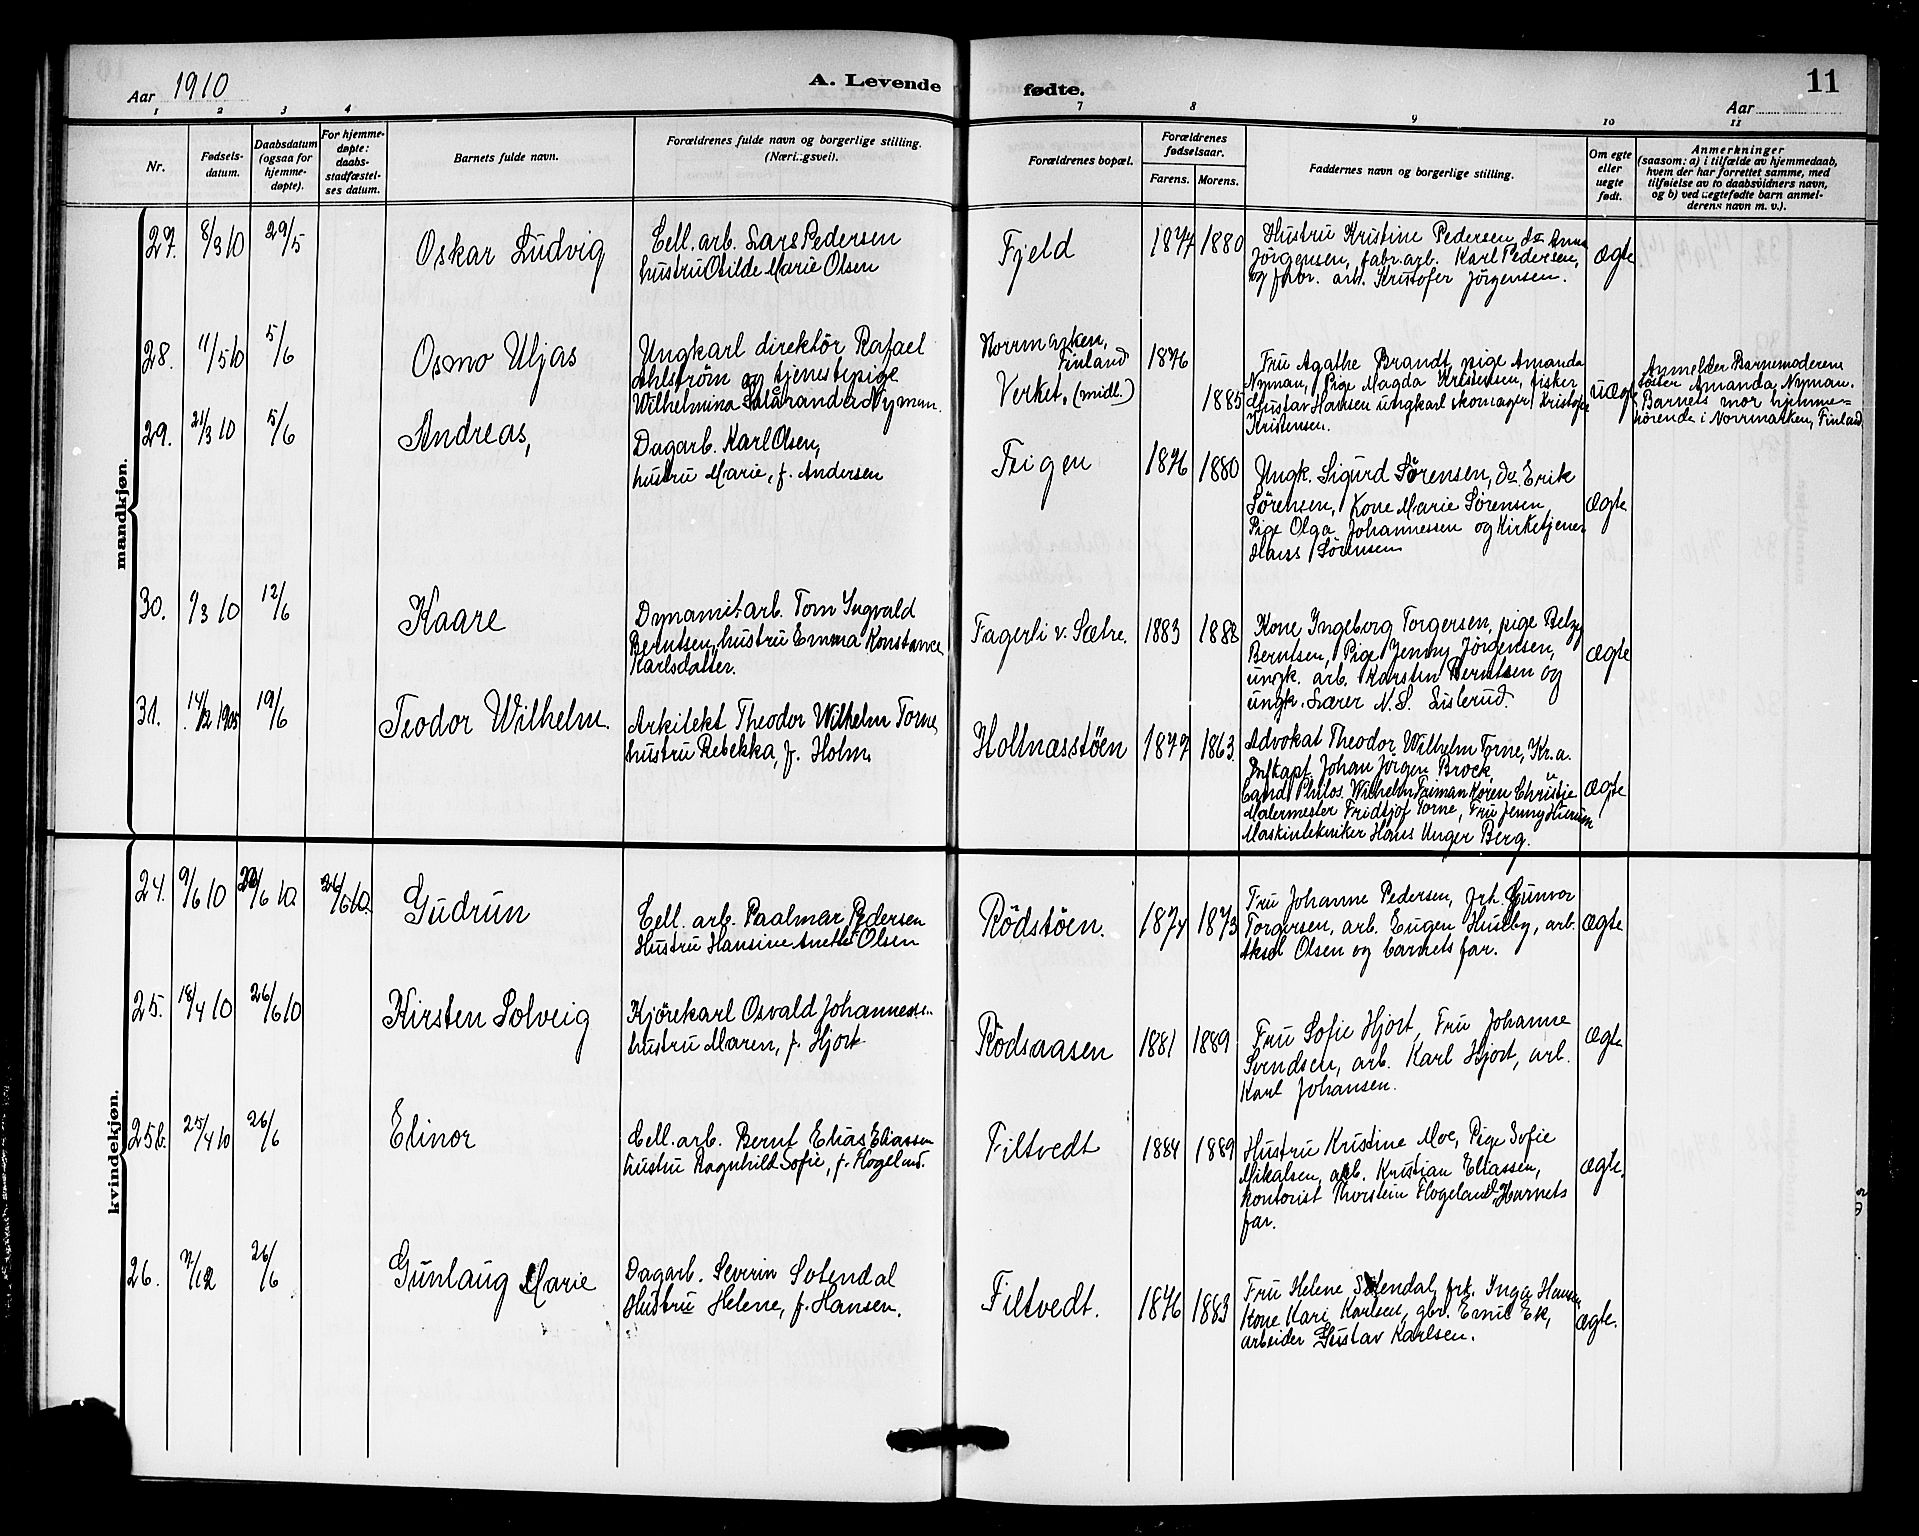 Aar 1910
A. Levende
fødte.
Aar
11
1 2 3 4 7 8 9 10 11
Nr.
Fødsels-
datum.
Daabsdatum
(ogsaa for
hjemme-
døpte).
For hjemme-
døpte:
daabs-
stadfæstel-
ses datum.
Barnets fulde navn.
Forældrenes fulde navn og borgerlige stilling.
(Næringsvei).
Forældrenes bopæl.
Forældrenes
fødselsaar.
Farens. Morens.
Faddernes navn og borgerlige stilling.
Om egte
eller
uegte
født.
Anmerkninger
(saasom: a) i tilfælde av hjemmedaab,
hvem der har forrettet samme, med
tilføielse av to daabsvidners navn,
og b) ved uegtefødte barn anmel-
derens navn m. v.).
mandkjøn.
27. 8/3 10 29/5 Oskar Ludvig
Cell. arb. Lars Pedersen
hustru Otilde Marie Olsen
Fjeld 1874 1880
Hustru Kristine Pedersen, do Anna
Jørgensen, fabr. arb. Karl Pedersen,
og fabr. arb. Kristofer Jørgensen.
ægte
28. 11/5 10 5/6 Osmo Uljas
Ungkarl direktör Rafael
Ahlström og tjenestepige
Wilhelmina Nyman.
Norrmarken,
Finland
Verket. (midl.)
1876 1885
Fru Agathe Brandt, pige Amanda
Nyman, Pige Magda Kristensen, fisker
Gustav Hansen ungkarl skomager Kristofer
Kristensen.
uægte
Anmelder Barnemoderens
søster Amanda Nyman.
Barnets mor hjemme-
hörende i Norrmarken, Finland
29. 21/3 10 5/6 Andreas,
Dagarb. Karl Olsen,
hustru Marie, f. Andersen
Teigen 1876 1880
Ungk. Sigurd Sörensen, do Erik
Sörensen, Kone Marie Sörensen,
Pige Olga Johannessen og Kirketjener
Hans Sörensen
ægte
30. 9/3 10 12/6 Kaare
Dynamit. arb. Tom Ingvald
Berntsen, hustru Emma Konstance
Karlsdatter.
Fagerli v. Sætre. 1883 1888
Kone Ingeborg Torgersen, pige Betzy
Berntsen, Pige Jenny Jörgensen,
ungk. arb. Karsten Berntsen og
ungk. Lærer N. S. Sislerud.
ægte
31. 14/12 1905 19/6 Teodor Wilhelm.
Arkitekt Theodor Wilhelm Torne,
hustru Rebekka, f. Holm
Holtnæsstöen 1877 1863.
Advokat Theodor Wilhelm Torne, Kr.a.
Johan Jörgen Brock,
Cand. Philos. Wilhelm Koren Christie
Malermester Fridtjof Torne, Fru Jenny
Maskintekniker Hans Unger Berg.
ægte
kvindekjøn.
24. 9/6 10 22/6 10. 26/6 10. Gudrun
Cell. arb. Paalmar Pedersen
Hustru Hansine Anette Olsen
Rödstöen. 1874 1873
Fru Johanne Pedersen, frk. Gunvor
Torgersen, arb. Eugen Huseby, arb.
Aksel Olsen og barnets far.
ægte
25. 18/4 10 26/6 10 Kirsten Solveig
Kjörekarl Osvald Johannesse..
hustru Maren, f. Hjort
Rödsaasen 1881 1889
Fru Sofie Hjort, Fru Johanne
Svendsen, arb. Karl Hjort, arb.
Karl Johansen.
ægte
25b. 25/4 10 26/6 Elinor
Cell. arb. Bernt Elias Eliassen
hustru Ragnhild Sofie, f. Flogeland.
Filtvedt 1884 1889
Hustru Kristine Moe, Pige Sofie
Mikalsen, arb. Kristian Eliassen,
kontorist Thorstein Flogeland & Barnets
far.
ægte.
26. 7/12 26/6 Gunlaug Marie
Dagarb. Severin Sotendal
Hustru Helene, f. Hansen.
Filtvedt. 1876 1883
Fru Helene Sotendal, frk. Inga Hansen
Kone Kari Karlsen, gbr. Emil Ek,
arbeider Gustav Karlsen.
ægte.